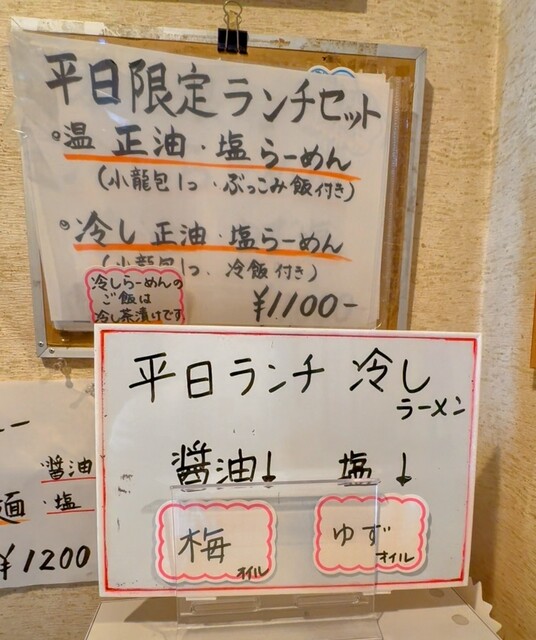 平日限定ランチセット
◦温 正油・塩らーめん
(小龍包1つ・ぶっこみ飯付き)
◦冷し 正油・塩らーめん
(小龍包1つ、冷飯付き)
¥1100-
冷しらーめんの
ご飯は
冷し茶漬けです
平日ランチ 冷し
ラーメン
醤油↓ 塩↓
梅
オイル
ゆず
オイル
醤油
麺・塩
¥1200